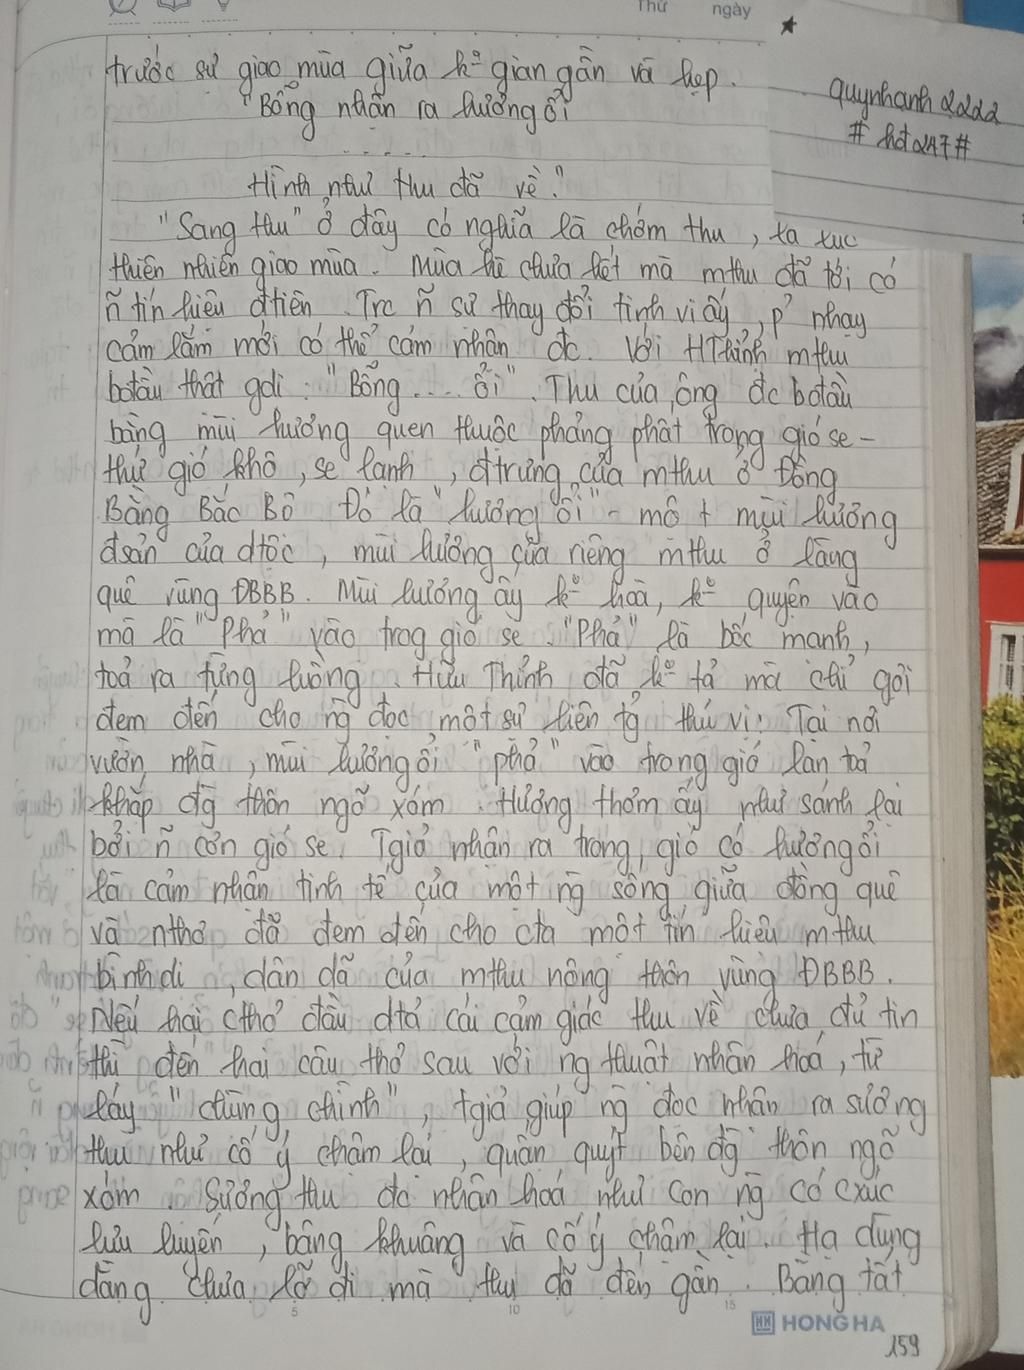 Thứ ngày
trước sự giao mùa giữa k° gian gần và hẹp.
quynhanh2222
#hđ247#
"Bỗng nhận ra hương ổi
.....
Hình như thu đã về."
"Sang thu" ở đây có nghĩa là chớm thu, là xúc
thiên nhiên giao mùa. Mùa hè chưa hết mà mthu đã tới có
~n tín hiệu đtiên. Trc ~n sự thay đổi tinh vi ấy, p' nhạy
cảm lắm mới có thể cảm nhận đc. Với HThỉnh mthu
bđầu thật gdị: "Bỗng... ổi". Thu của ông đc bđầu
bằng mùi hương quen thuộc phảng phất trong gió se -
thứ gió khô, se lạnh, đtrưng của mthu ở Đồng
Bằng Bắc Bộ. Đó là "hương ổi" - một mùi hương
đsản của dtộc, mùi hương của riêng mthu ở làng
quê vùng ĐBBB. Mùi hương ấy k° hoà, k° quyện vào
mà là "Phả" vào trog gió se. "Phả" là bốc mạnh,
toả ra từng luồng. Hữu Thỉnh đã k° tả mà chỉ gợi
đem đến cho ng đọc một sự liên tg thú vị: Tại nơi
vườn nhà, mùi hương ổi "phả" vào trong gió lan toả
khắp đg thôn ngõ xóm. Hương thơm ấy như sánh lại
bởi ~n cơn gió se. Tgiả nhận ra trong gió có hương ổi
là cảm nhận tinh tế của một ng sống giữa đồng quê
và nthơ đã đem đến cho cta một tín hiệu mthu
bình dị, dân dã của mthu nông thôn vùng ĐBBB.
Nếu hai cthơ đầu dtả cái cảm giác thu về chưa đủ tin
thì đến hai câu thơ sau với ng thuật nhân hoá, từ
láy "chùng chình", tgiả giúp ng đọc nhận ra sương
thu như cố ý chậm lại, quấn quýt bên đg thôn ngõ
xóm. Sương thu đc nhân hoá như con ng có cxúc
lưu luyến, bâng khuâng và cố ý chậm lại. Hạ dùng
dằng chưa lỡ đi mà thu đã đến gần. Bằng tất
5 10 15
HH HONG HA
159